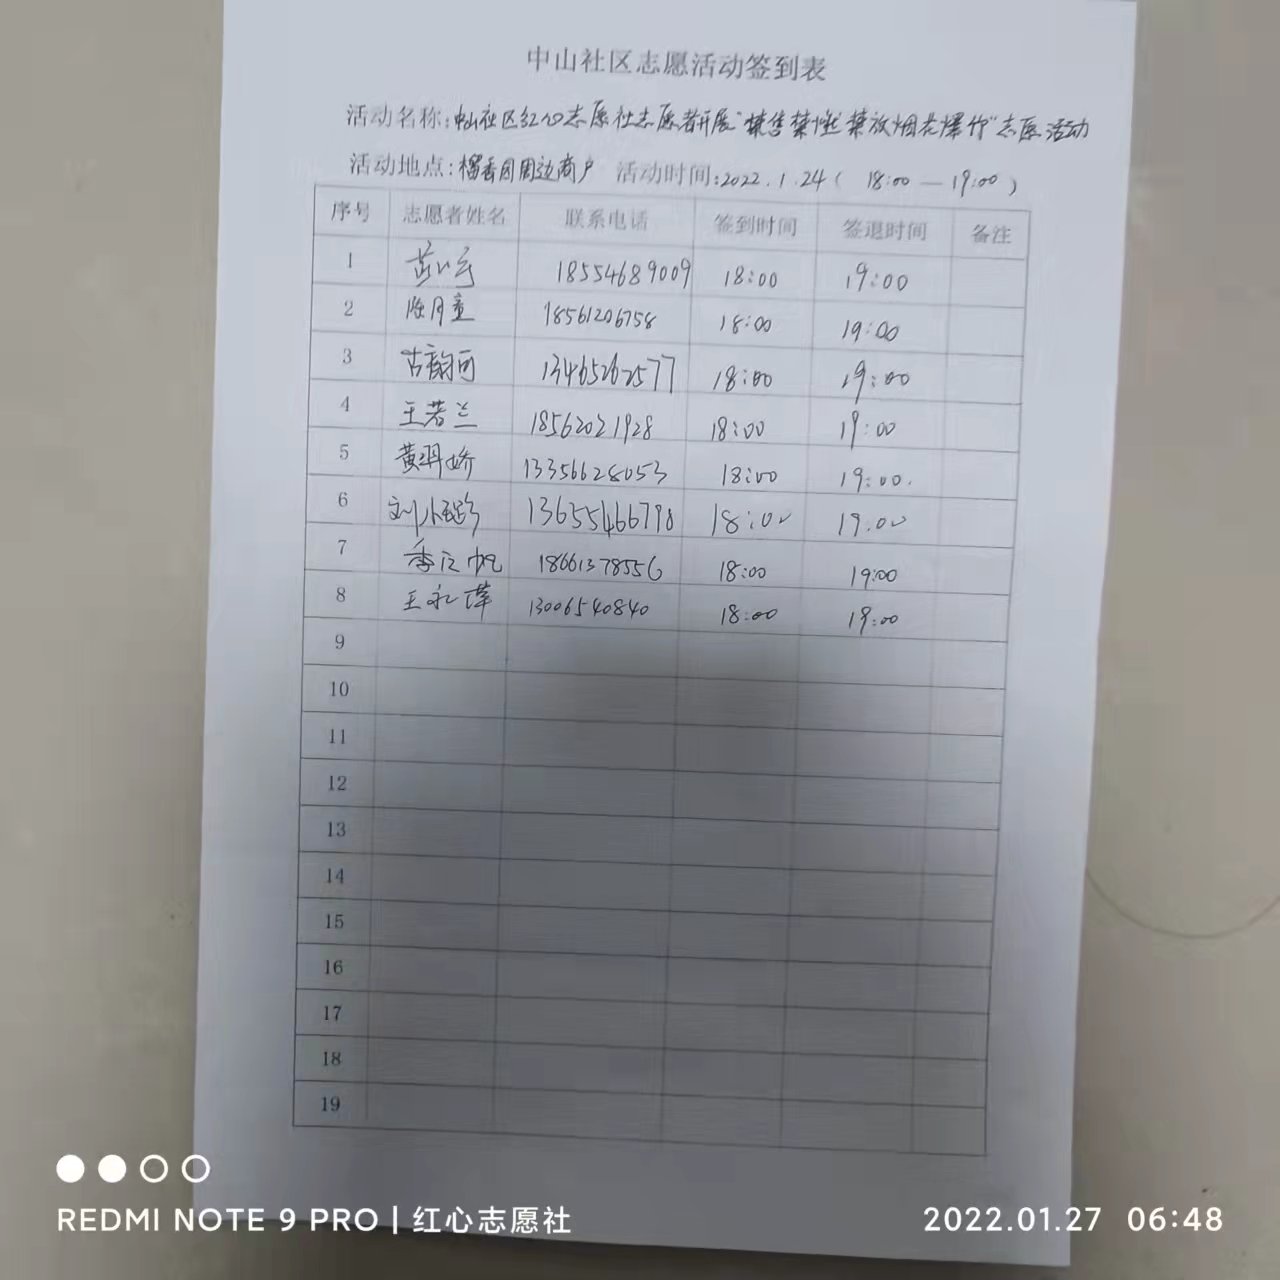 中山社区志愿活动签到表
活动名称:中山社区红心志愿社志愿者开展"禁售禁燃禁放烟花爆竹"志愿活动
活动地点:榴香园周边商户 活动时间:2022.1.24( 18:00 — 19:00 )
序号 志愿者姓名 联系电话 签到时间 签退时间 备注
1 18554689009 18:00 19:00
2 陈月童 18561206758 18:00 19:00
3 古韵可 13465262577 18:00 19:00
4 王若兰 18562021928 18:00 19:00
5 黄 娇 13356628053 18:00 19:00.
6 刘 13655466798 18:00 19.00
7 季 帆 18661378556 18:00 19:00
8 王永 13006540840 18:00 19:00
9
10
11
12
13
14
15
16
17
18
19
REDMI NOTE 9 PRO | 红心志愿社 2022.01.27 06:48